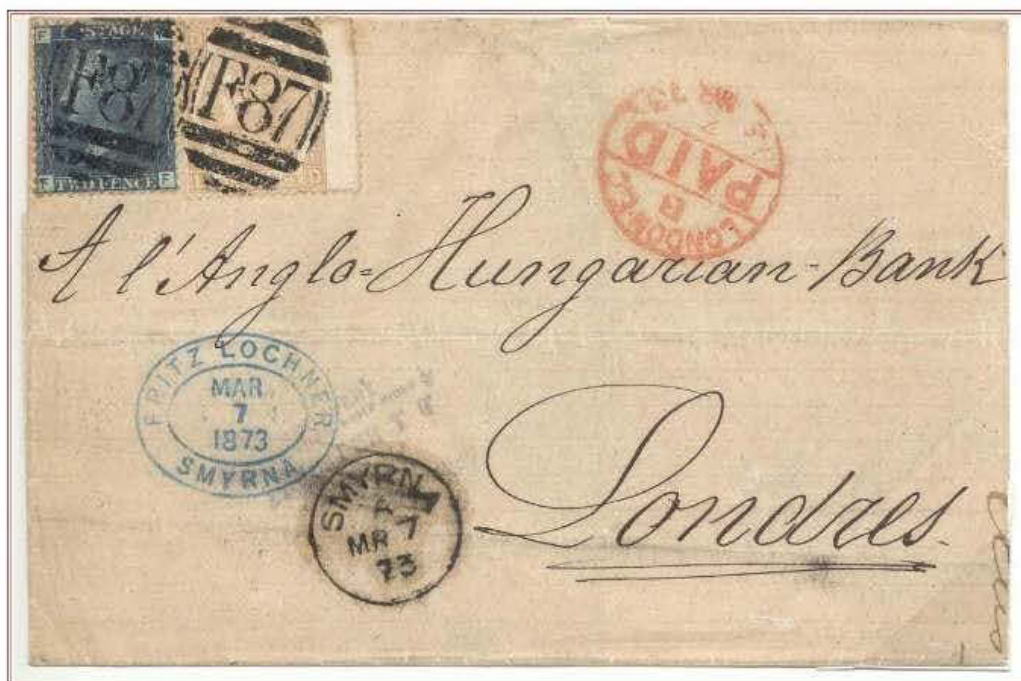 F POSTAGE F
F TWO PENCE F
F87
F87
LONDON
B
PAID
MR 73
A l'Anglo=Hungarian-Bank
Londres.
FRITZ LOCHNER
MAR
7
1873
SMYRNA
SMYRNA
A
MR 7
73